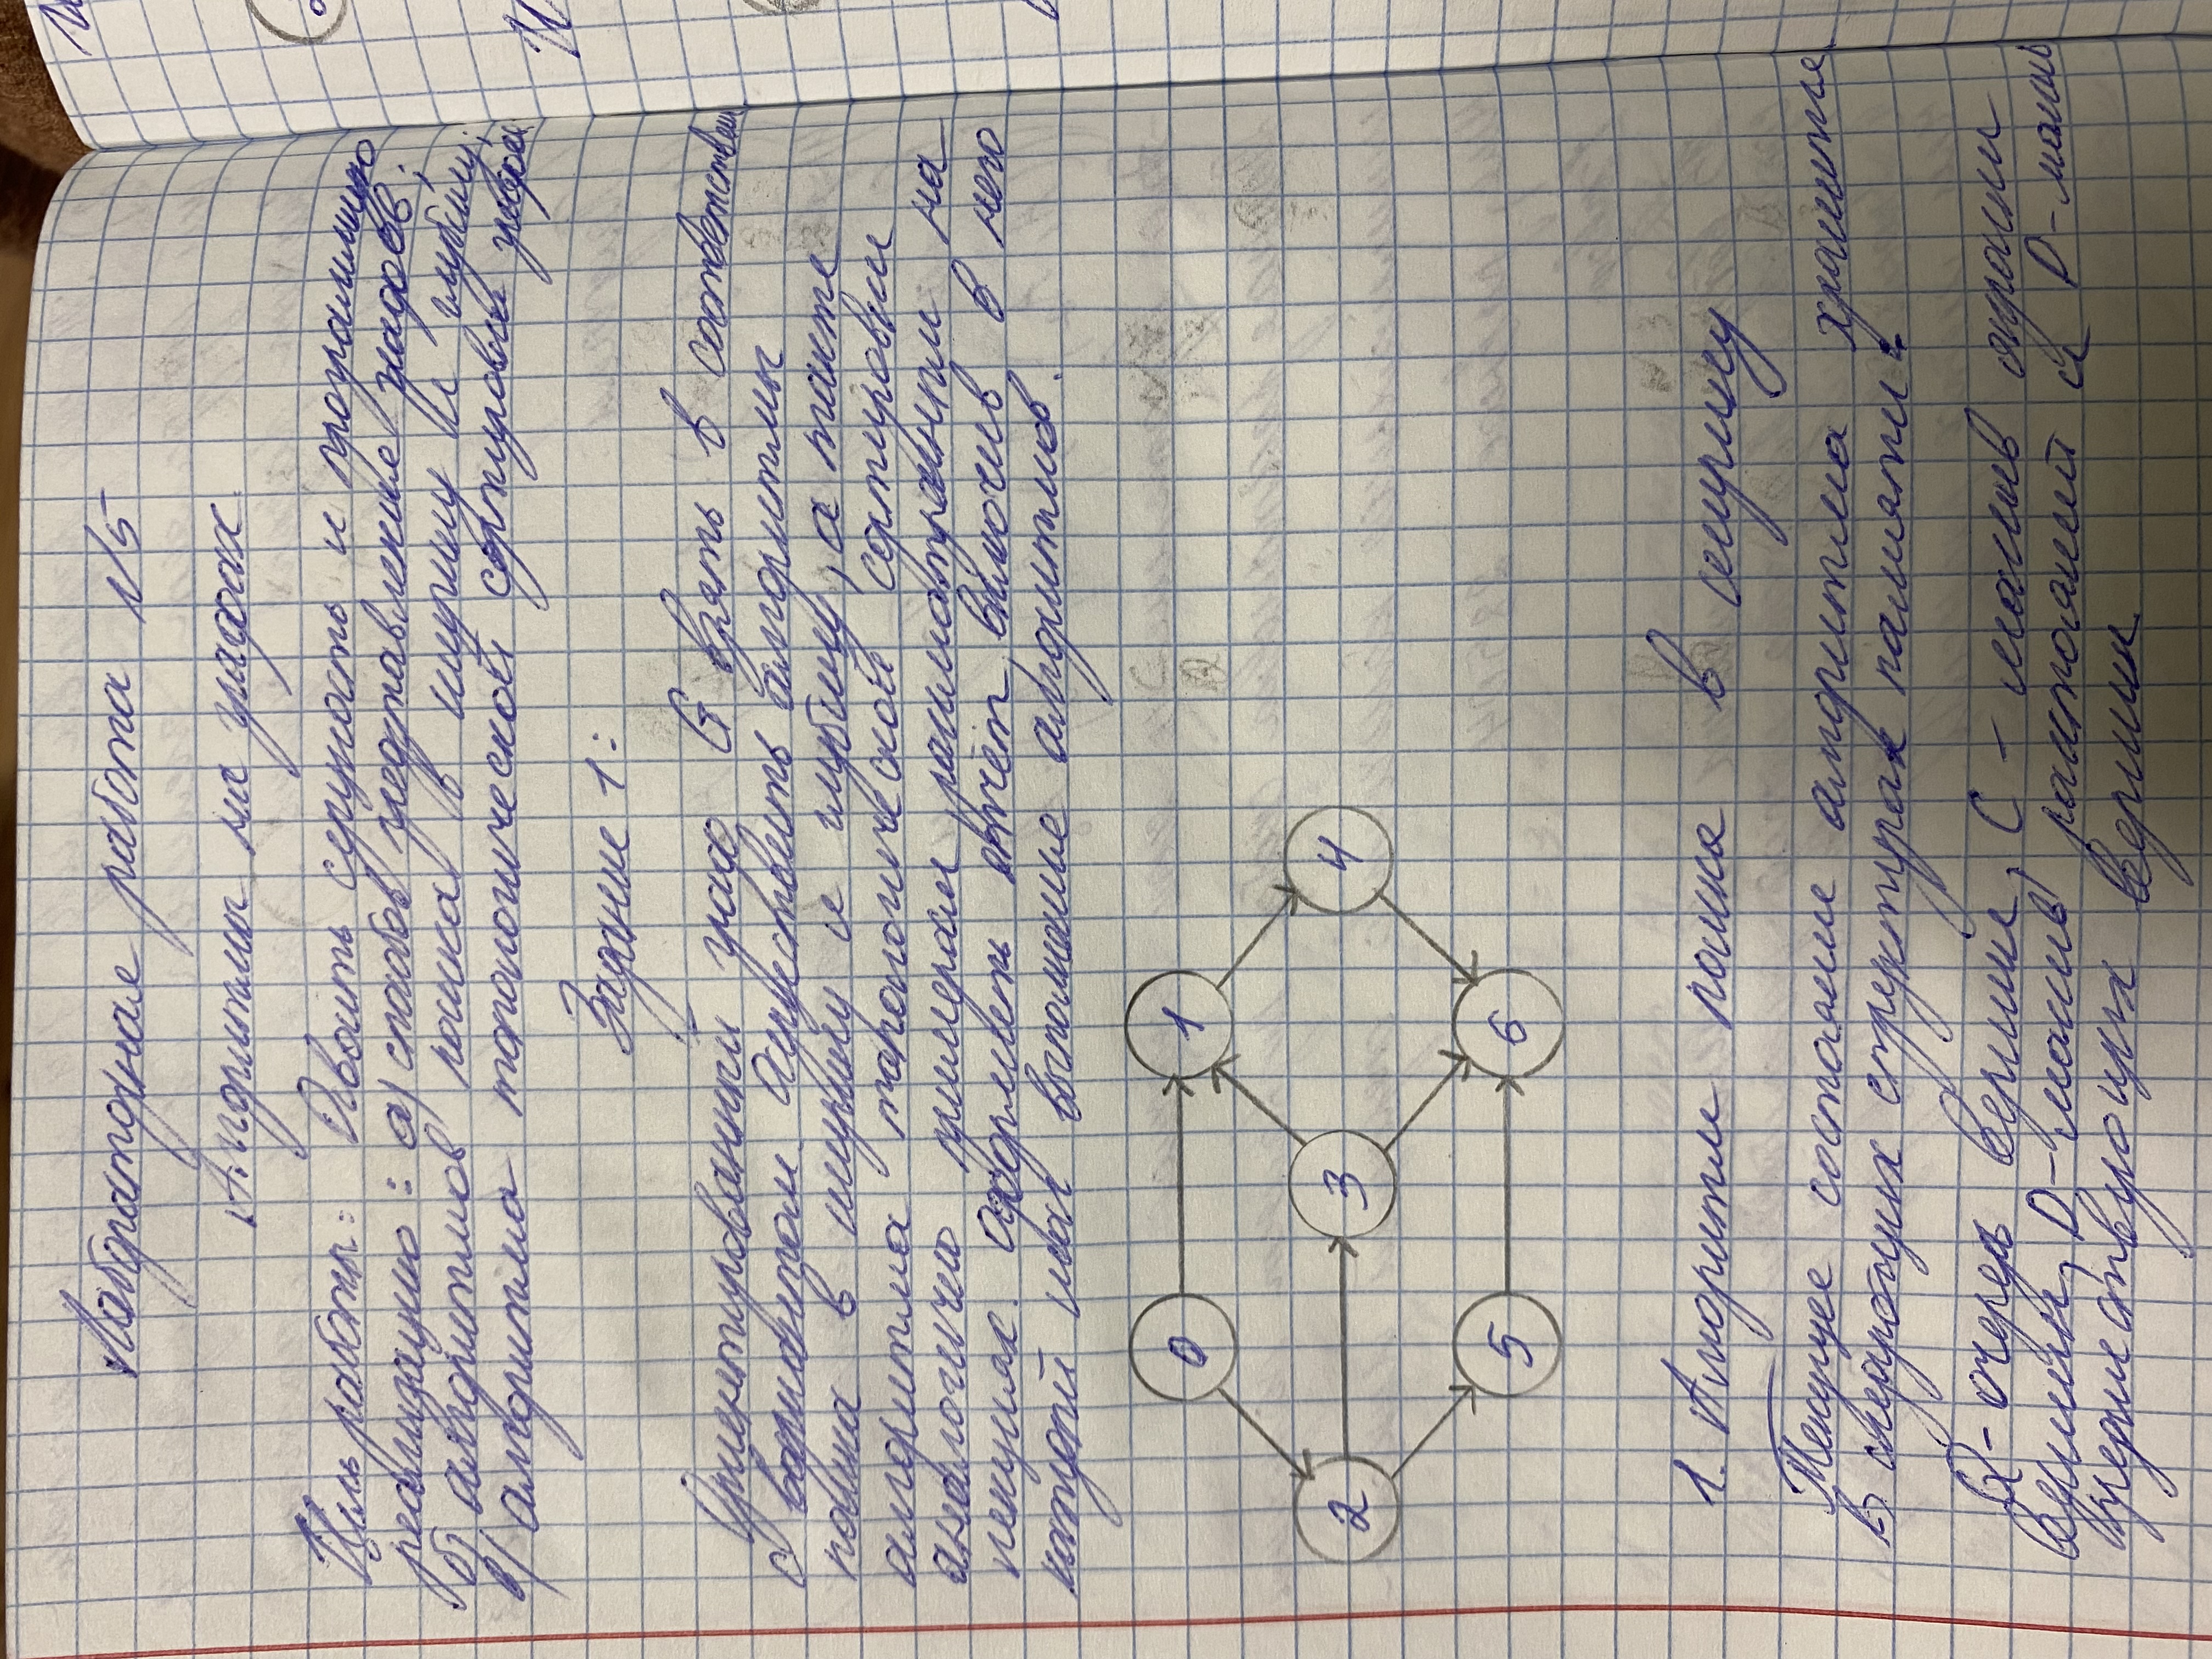 Лабораторная работа №5
Алгоритмы на графах.
Цель работы: Освоить сущность и программную
реализацию: а) способов представления графов;
б) алгоритмов поиска в ширину и глубину;
в) алгоритма топологической сортировки графов.
Задание 1:
Ориентированный граф G взять в соответствии
с вариантом. Осуществить алгоритмы
поиска в ширину и глубину, а также
алгоритма топологической сортировки
аналогично примерам, рассмотренным на
лекциях. Оформить отчёт, включив в него
каждый шаг выполнения алгоритмов.
0 1
2 3 4
5 6
1. Алгоритм поиска в ширину
Текущее состояние алгоритма хранится
в следующих структурах памяти:
Q - очередь вершин, C - массив окраски
вершин, D - массив расстояний и P - массив
предшествующих вершин